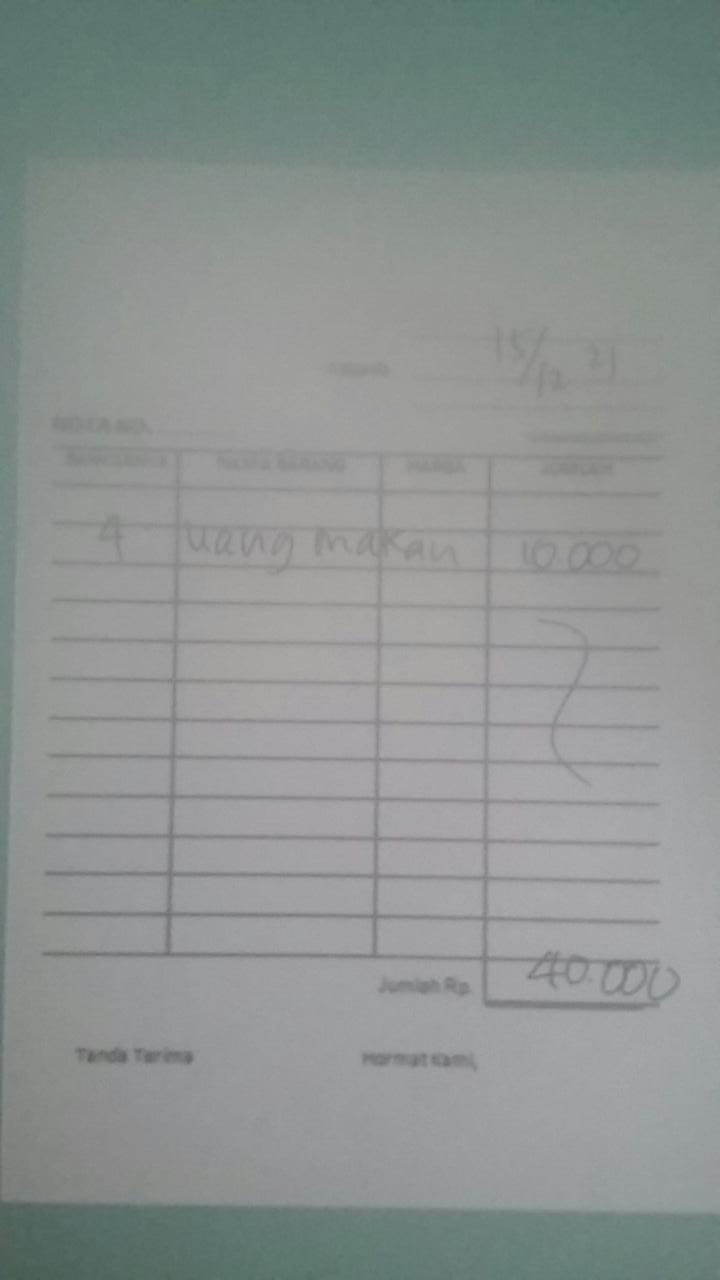 15/12 21
NOTA NO.
BANYAKNYA NAMA BARANG HARGA JUMLAH
4 uang makan 10.000
Jumlah Rp. 40.000
Tanda Terima Hormat Kami,